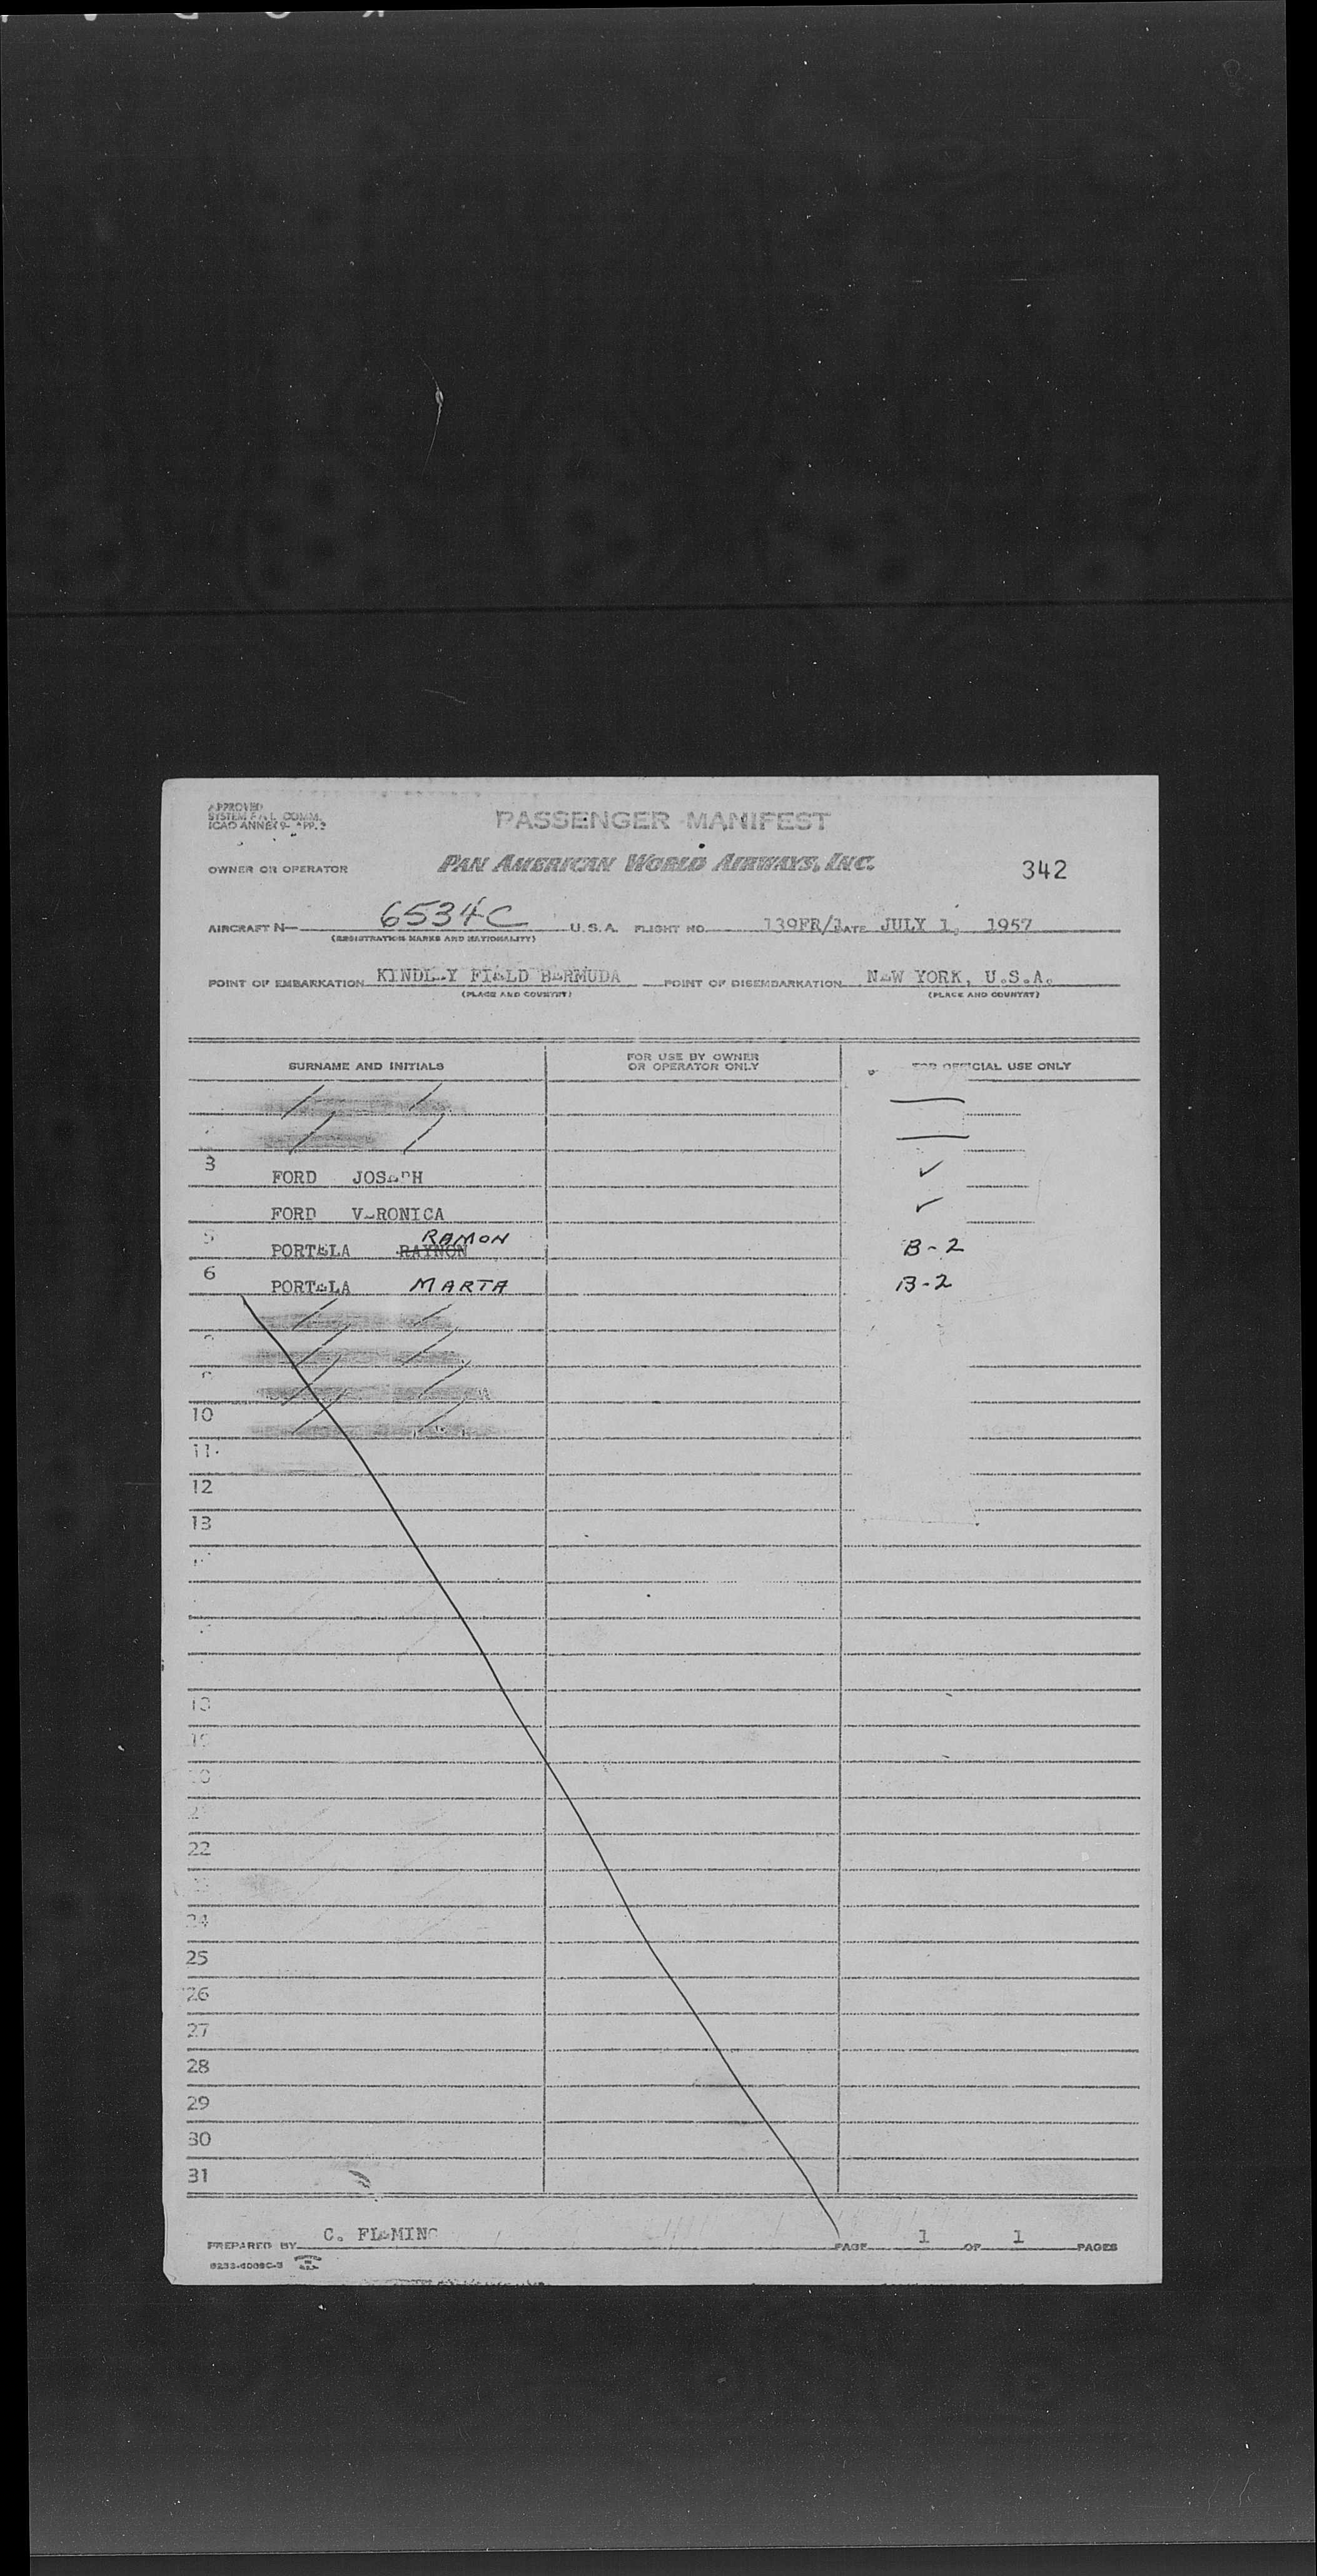 APPROVED
SYSTEM FAL COMM.
ICAO ANNEX 9- APP. 2
PASSENGER MANIFEST
OWNER OR OPERATOR PAN AMERICAN WORLD AIRWAYS, INC. 342
AIRCRAFT N— 6534C U.S.A. FLIGHT NO. 139FR/1 DATE JULY 1, 1957
(REGISTRATION MARKS AND NATIONALITY)
POINT OF EMBARKATION KINDLEY FIELD BERMUDA POINT OF DISEMBARKATION NEW YORK, U.S.A.
(PLACE AND COUNTRY) (PLACE AND COUNTRY)
SURNAME AND INITIALS FOR USE BY OWNER OR OPERATOR ONLY FOR OFFICIAL USE ONLY
3 FORD JOSEPH ✓
FORD VERONICA ✓
5 PORTELA RAYNON RAMON B-2
6 PORTELA MARTA B-2
10
11
12
13
18
19
20
22
24
25
26
27
28
29
30
31
PREPARED BY C. FLEMING PAGE 1 OF 1 PAGES